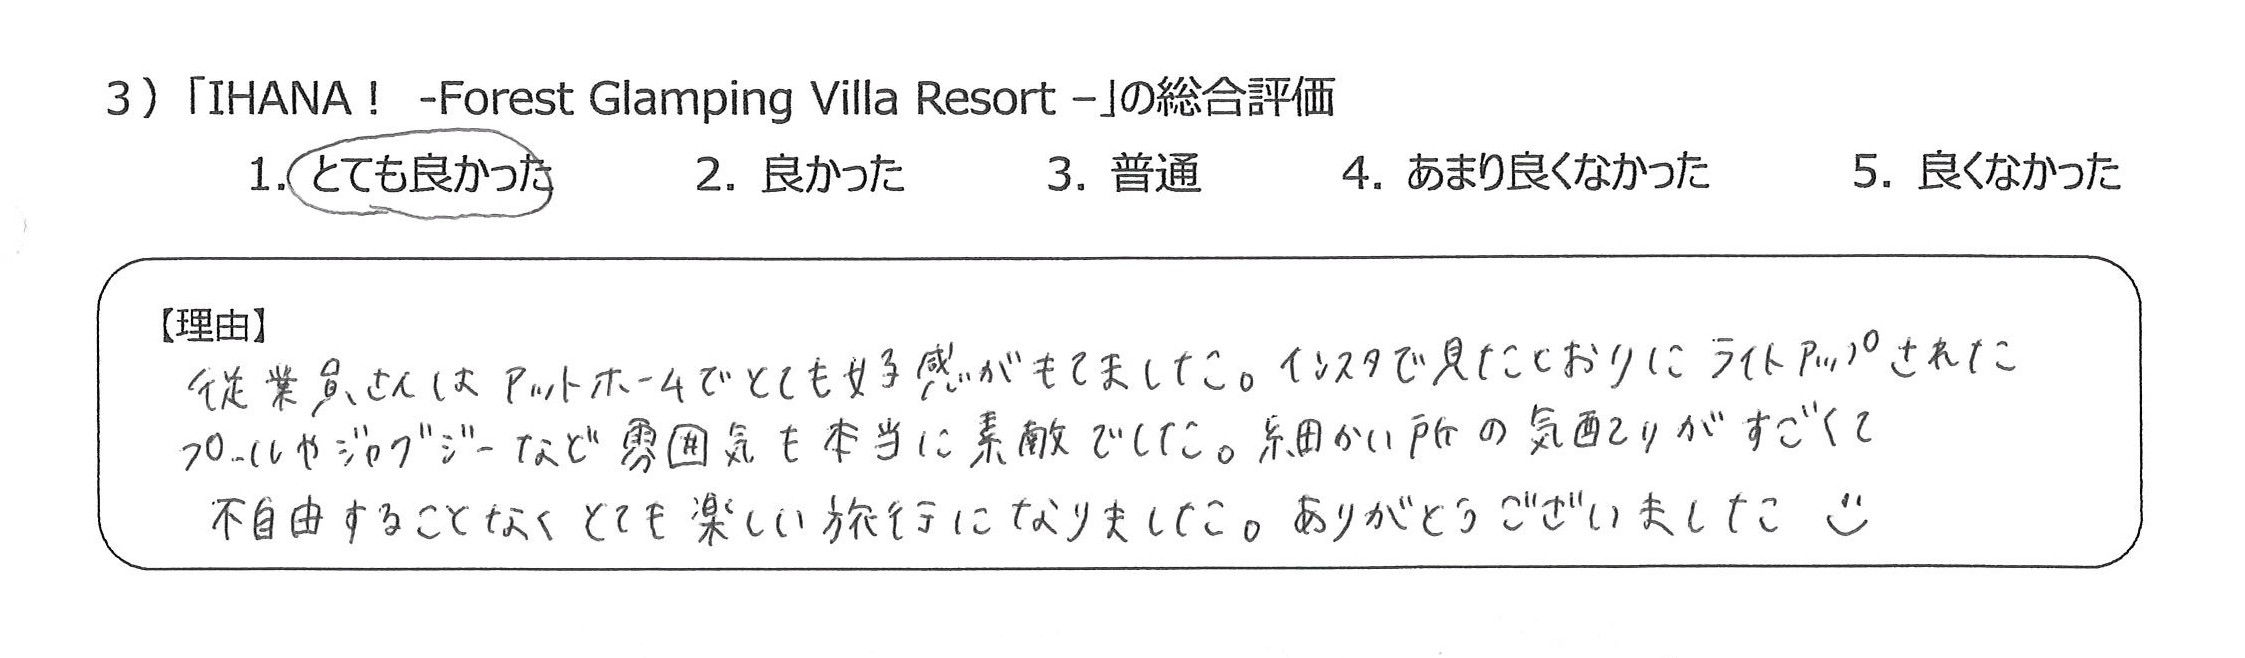 3）「IHANA！ -Forest Glamping Villa Resort –」の総合評価
1. とても良かった 2. 良かった 3. 普通 4. あまり良くなかった 5. 良くなかった
【理由】
従業員さんはアットホームでとても好感がもてました。インスタで見たとおりにライトアップされた
プールやジャグジーなど雰囲気も本当に素敵でした。細かい所の気配りがすごくて
不自由することなくとても楽しい旅行になりました。ありがとうございました